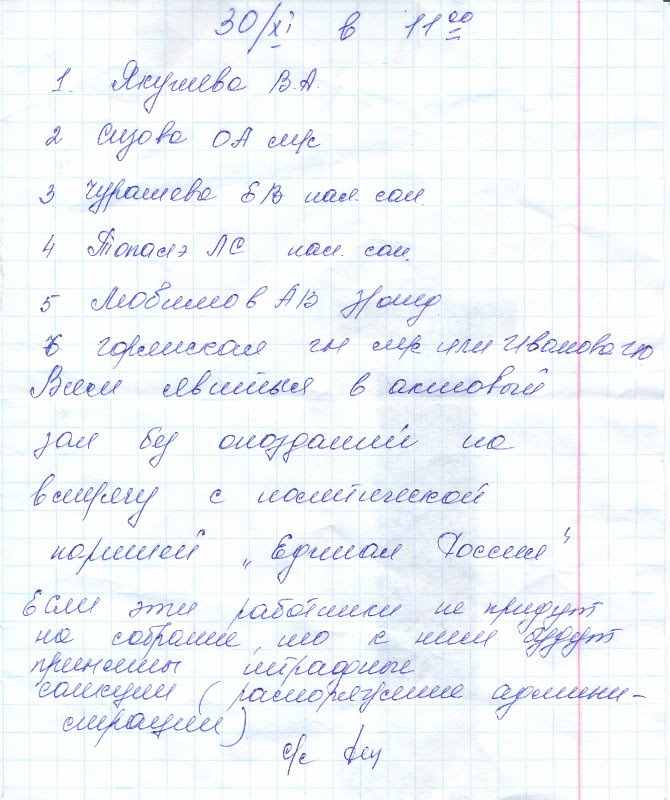 30/XI в 11⁰⁰
1. Якушева В.А.
2 Сизова ОА м/с
3 Чурашева ЕВ пал. сан.
4 Топалэ ЛС пал. сан.
5 Любимов АВ
6 Горлинская ГН м/с или Иванова ГЮ
Всем явиться в актовый
зал без опозданий на
встречу с политической
партией „Единая Россия"
Если эти работники не придут
на собрание, то к ним будут
приняты штрафные
санкции (распоряжение админи-
страции)
с/с